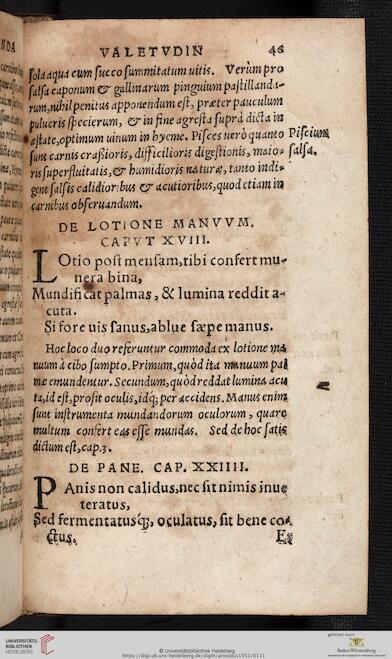 VALETVDIN 48
sola aqua cum succo summitatum uitis. Verùm pro
salsa caponum & gallinarum pinguium pastillanda-
rum, nihil penitus apponendum est, præter pauculum
pulueris specierum, & in fine agresta suprà dicta in
æstate, optimum uinum in hyeme. Pisces uerò quanto
Piscium
salsa.
sunt carnis craßioris, difficilioris digestionis, maio-
ris superfluitatis, & humidioris naturæ, tanto indi-
gent salsis calidioribus & acutioribus, quod etiam in
carnibus obseruandum.
DE LOTIONE MANVVM.
CAPVT XVIII.
LOtio post mensam, tibi confert mu-
nera bina,
Mundificat palmas, & lumina reddit a-
cuta.
Si fore uis sanus, ablue sæpe manus.
Hoc loco duo referuntur commoda ex lotione ma
nuum à cibo sumpto. Primum, quòd ita manuum pal
mæ emundentur. Secundum, quòd reddat lumina acu
ta, id est, prosit oculis, idq; per accidens. Manus enim
sunt instrumenta mundandorum oculorum, quare
multum confert eas esse mundas. Sed de hoc satis
dictum est, cap. 3.
DE PANE. CAP. XXIIII.
PAnis non calidus, nec sit nimis inue
teratus,
Sed fermentatus q;, oculatus, sit bene co-
ctus.
Et
UNIVERSITÄTS-
BIBLIOTHEK
HEIDELBERG
https://digi.ub.uni-heidelberg.de/diglit/arnoldus1551/0111
© Universitätsbibliothek Heidelberg
gefördert durch
Baden-Württemberg